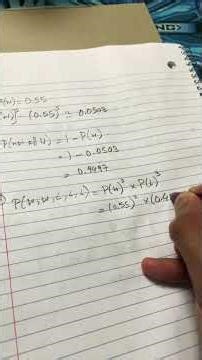 P(W) = 0.55
(0.55)⁵ ≈ 0.0503
P(not all W) = 1 - P(W)
= 1 - 0.0503
= 0.9497
P(W, W, L, L, L) = P(W)² × P(L)³
= (0.55)² × (0.4